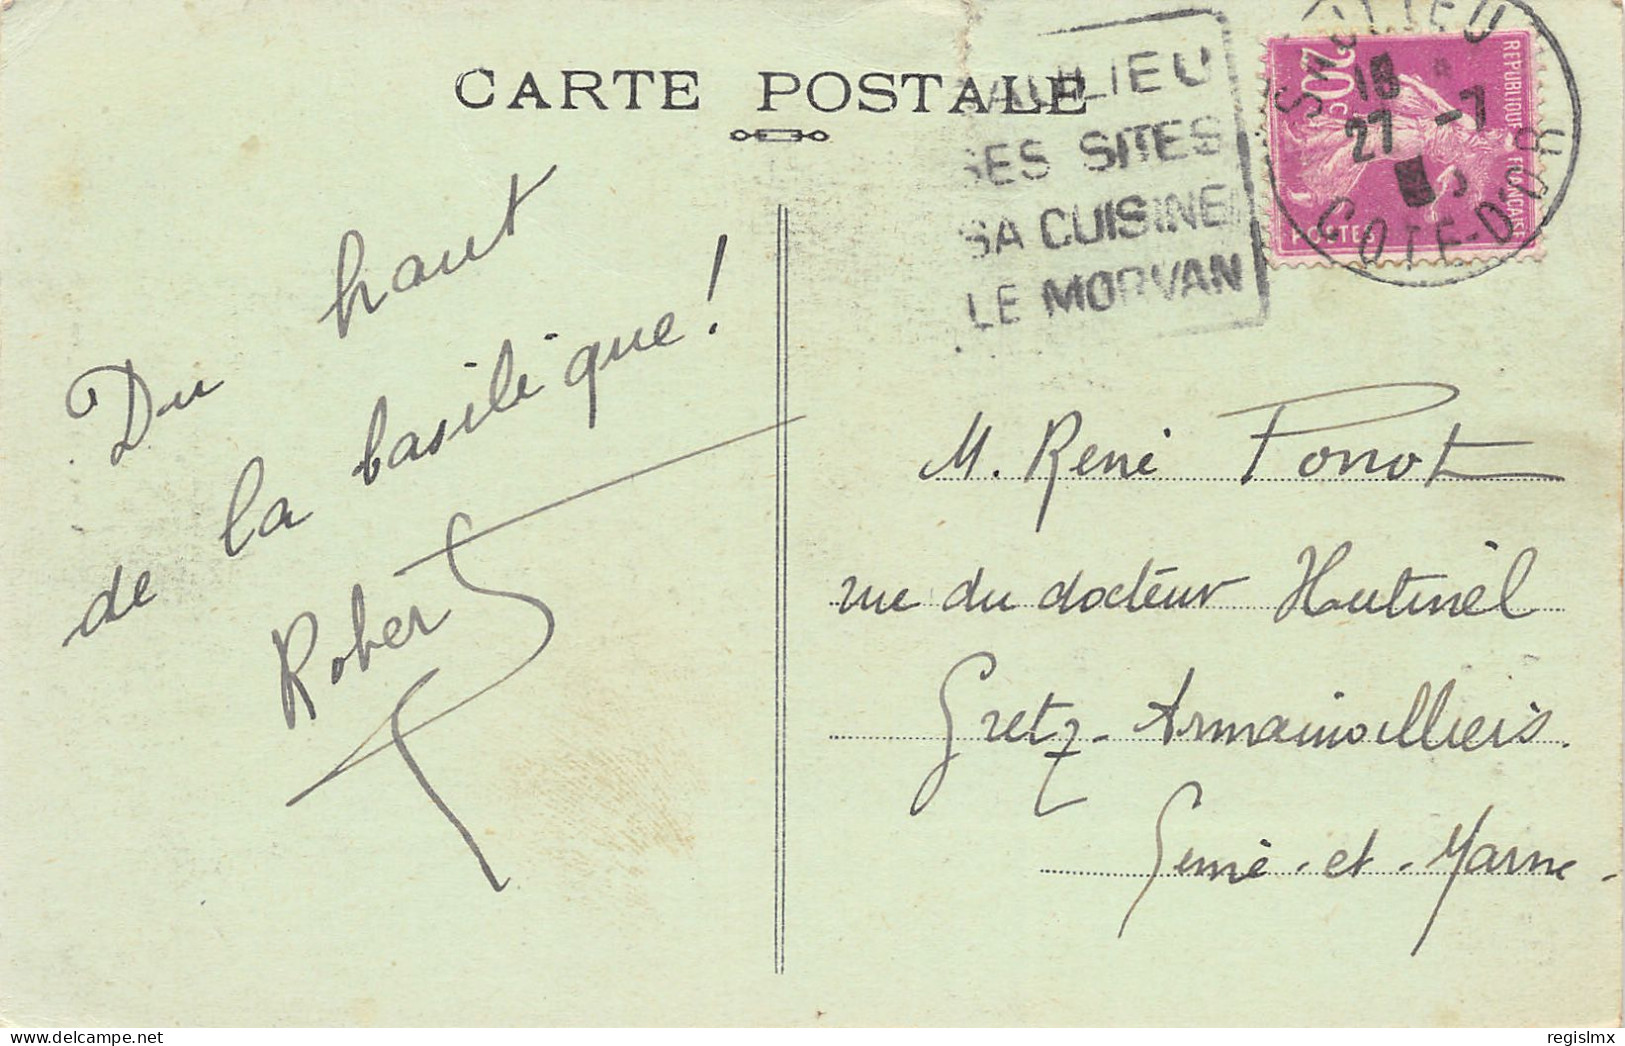 CARTE POSTALE
SAULIEU
SES SITES
SA CUISINE
LE MORVAN
SAULIEU
18
27 -7
COTE-D'OR
20c
REPUBLIQUE FRANCAISE
POSTES
Du haut
de la basilique!
Robert
M. René Ponot
rue du docteur Hutinel
Gretz-Armainvilliers.
Seine-et-Marne.
delcampe.net
regislmx